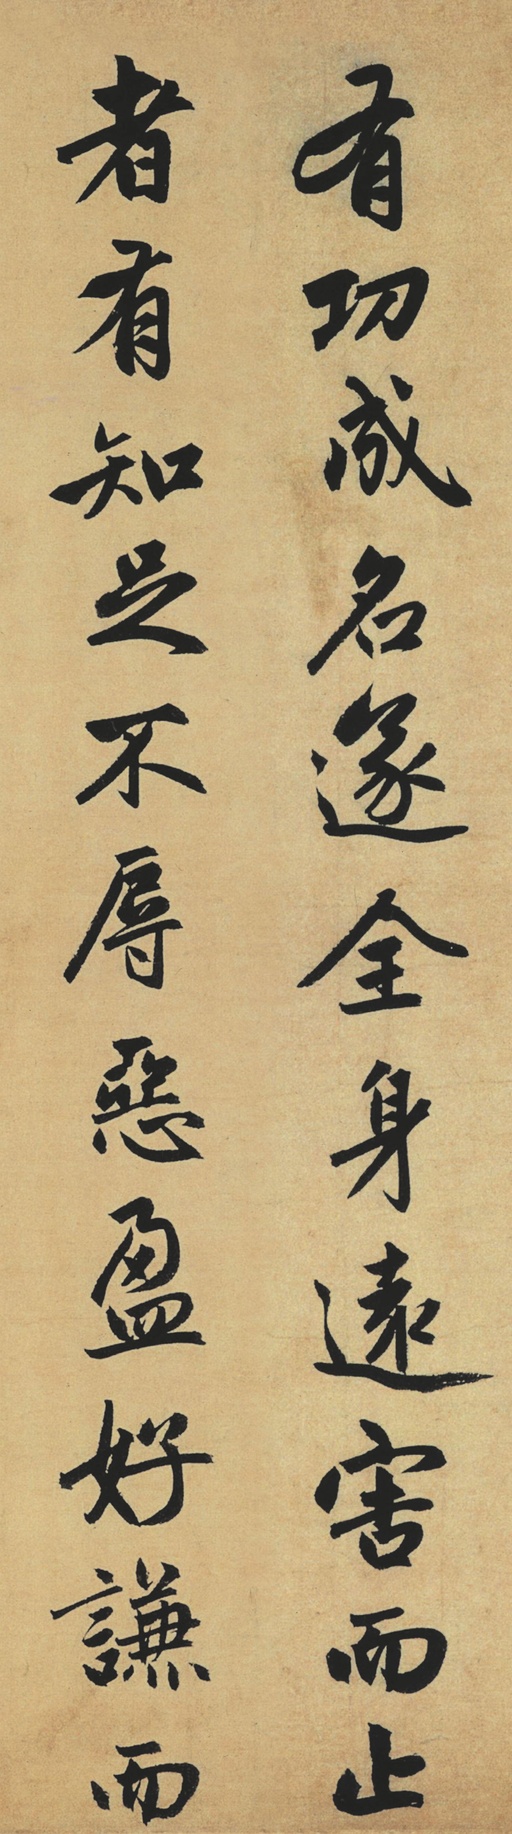 有功成名遂全身遠害而止
者有知足不辱惡盈好謙而